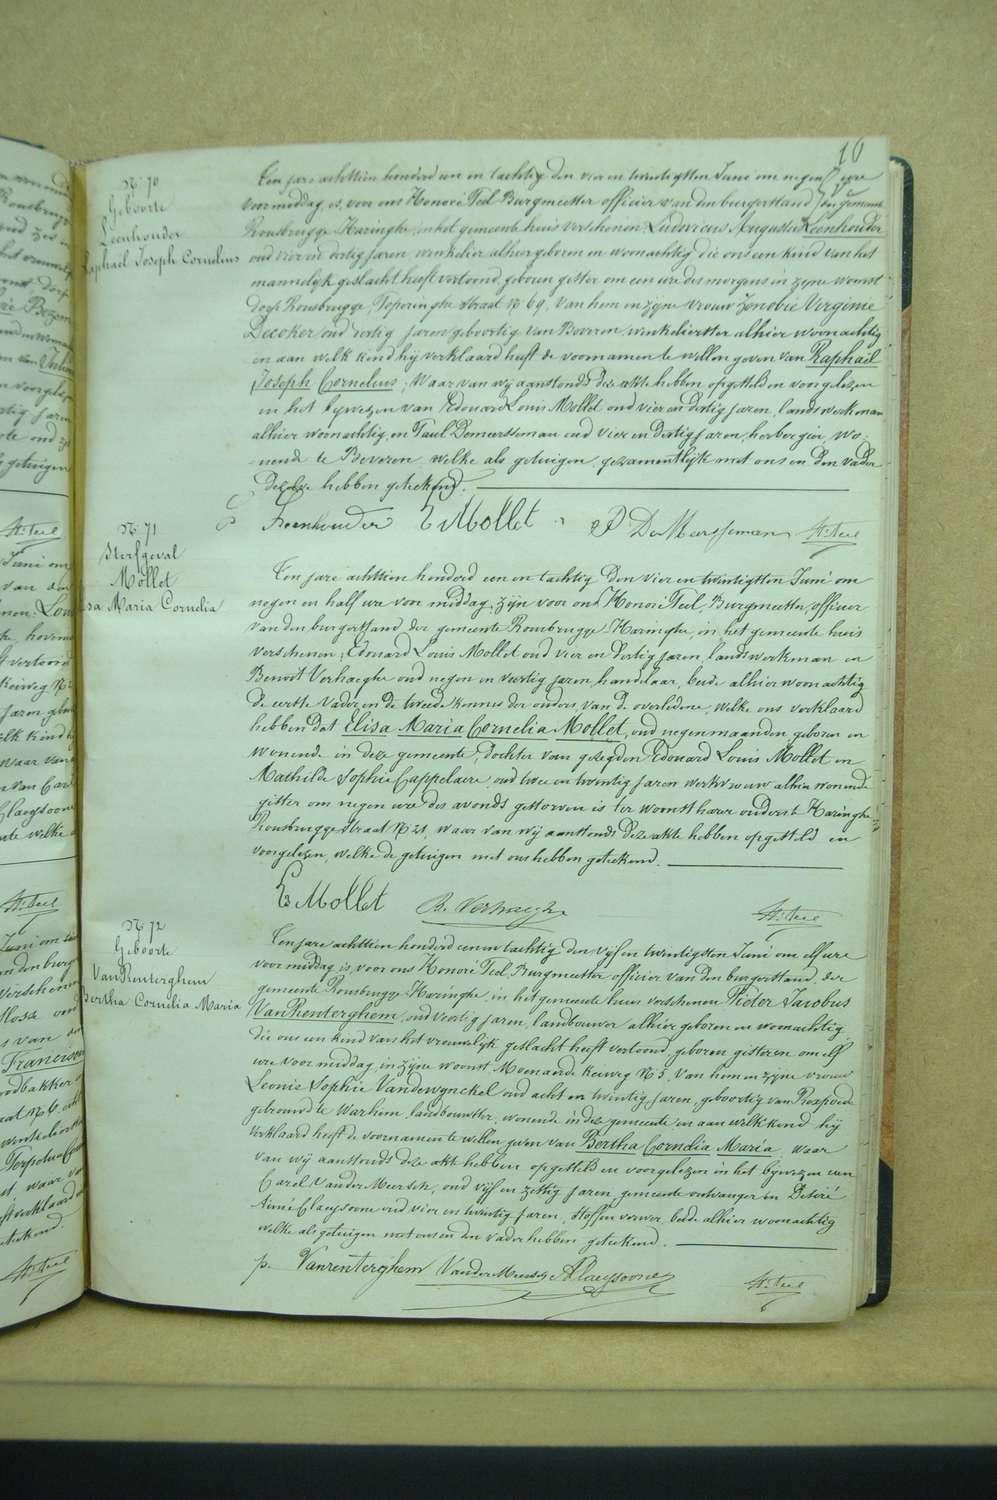 10
N° 70
Geboorte
Leenhouder
Raphaël Joseph Cornelius
Ten jare achttien honderd een en tachtig den vier en twintigsten Juni om negen ure
voormiddag, is, voor ons Honoré Teel Burgmeester officier van den burgerstand der gemeente
Rousbrugge Haringhe, in het gemeente huis verschenen Ludovicus Augustus Leenhouder
oud vier en dertig jaren, winkelier alhier geboren en woonachtig die ons een kind van het
mannelyk geslacht heeft vertoond, geboren gister om een ure des morgens in zyne woonst
dorp Rousbrugge, Poperinghe straat N° 69, van hem en zyne vrouw Zenobie Virginie
Decoker oud dertig jaren geboortig van Beveren winkelierster alhier woonachtig
en aan welk kind hy verklaard heeft de voornamen te willen geven van Raphaël
Joseph Cornelius, Waar van wy aanstonds deze akte hebben opgesteld en voorgelezen
in het bywezen van Edouard Louis Mollet oud vier en dertig jaren, landswerkman
alhier woonachtig, en Paul Demeersseman oud vier en dertig jaren, herbergier, wo-
nende te Beveren, welke als getuigen, gezamentlyk met ons en den vader
deze hebben geteekend.
Leenhouder E Mollet P DeMeersseman H. Teel
N° 71
Sterfgeval
Mollet
Elisa Maria Cornelia
Ten jare achttien honderd een en tachtig den vier en twintigsten Juni om
negen en half ure voor middag, zyn voor ons Honoré Teel, Burgmeester, officier
van den burgerstand der gemeente Rousbrugge-Haringhe, in het gemeente huis
verschenen, Edouard Louis Mollet oud vier en dertig jaren, landswerkman en
Benoit Verhaeghe oud negen en veertig jaren, handelaar, beide alhier woonachtig
de eerste Vader en de tweede kennis der ouders van de overledene, welke ons verklaard
hebben dat Elisa Maria Cornelia Mollet, oud negen maanden geboren en
wonende in deze gemeente, dochter van gezegden Edouard Louis Mollet en
Mathilde Sophie Cappelaere, oud twee en twintig jaren werkvrouw alhier wonende
gister om negen ure des avonds gestorven is ter woonst harer ouders te Haringhe
Rousbrugge straat N° 21, waar van wy aanstonds deze akte hebben opgesteld en
voorgelezen, welke de getuigen met ons hebben geteekend.
E Mollet B. Verhaeghe H. Teel
N° 72
Geboorte
VanRenterghem
Bertha Cornelia Maria
Ten jare achttien honderd een en tachtig den vyf en twintigsten Juni om elf ure
voormiddag is, voor ons Honoré Teel, Burgmeester officier van den burgerstand, der
gemeente Rousbrugge Haringhe, in het gemeente huis verschenen Pieter Jacobus
VanRenterghem, oud veertig jaren, landbouwer alhier geboren en woonachtig
die ons een kind van het vrouwelyk geslacht heeft vertoond, geboren gisteren om elf
ure voor middag in zyne woonst Moenaerde keiweg N° 5, van hem en zyne vrouw
Leonie Sophie Vandewynckel oud acht en twintig jaren, geboortig van Rexpoede
getrouwd te Warhem, landbouwster, wonende in deze gemeente en aan welk kind hy
verklaard heeft de voornamen te willen geven van Bertha Cornelia Maria, waar
van wy aanstonds deze akt hebben opgesteld en voorgelezen in het bywezen van
Carel VanderMeersch, oud vyf en zestig jaren, gemeente ontvanger en Desiré
Aimé Claeysoone oud vier en twintig jaren, stoffen verwer, beide alhier woonachtig
welke als getuigen met ons en den vader hebben geteekend.
p. Vanrenterghem VanderMeersch A Claeysoone H. Teel